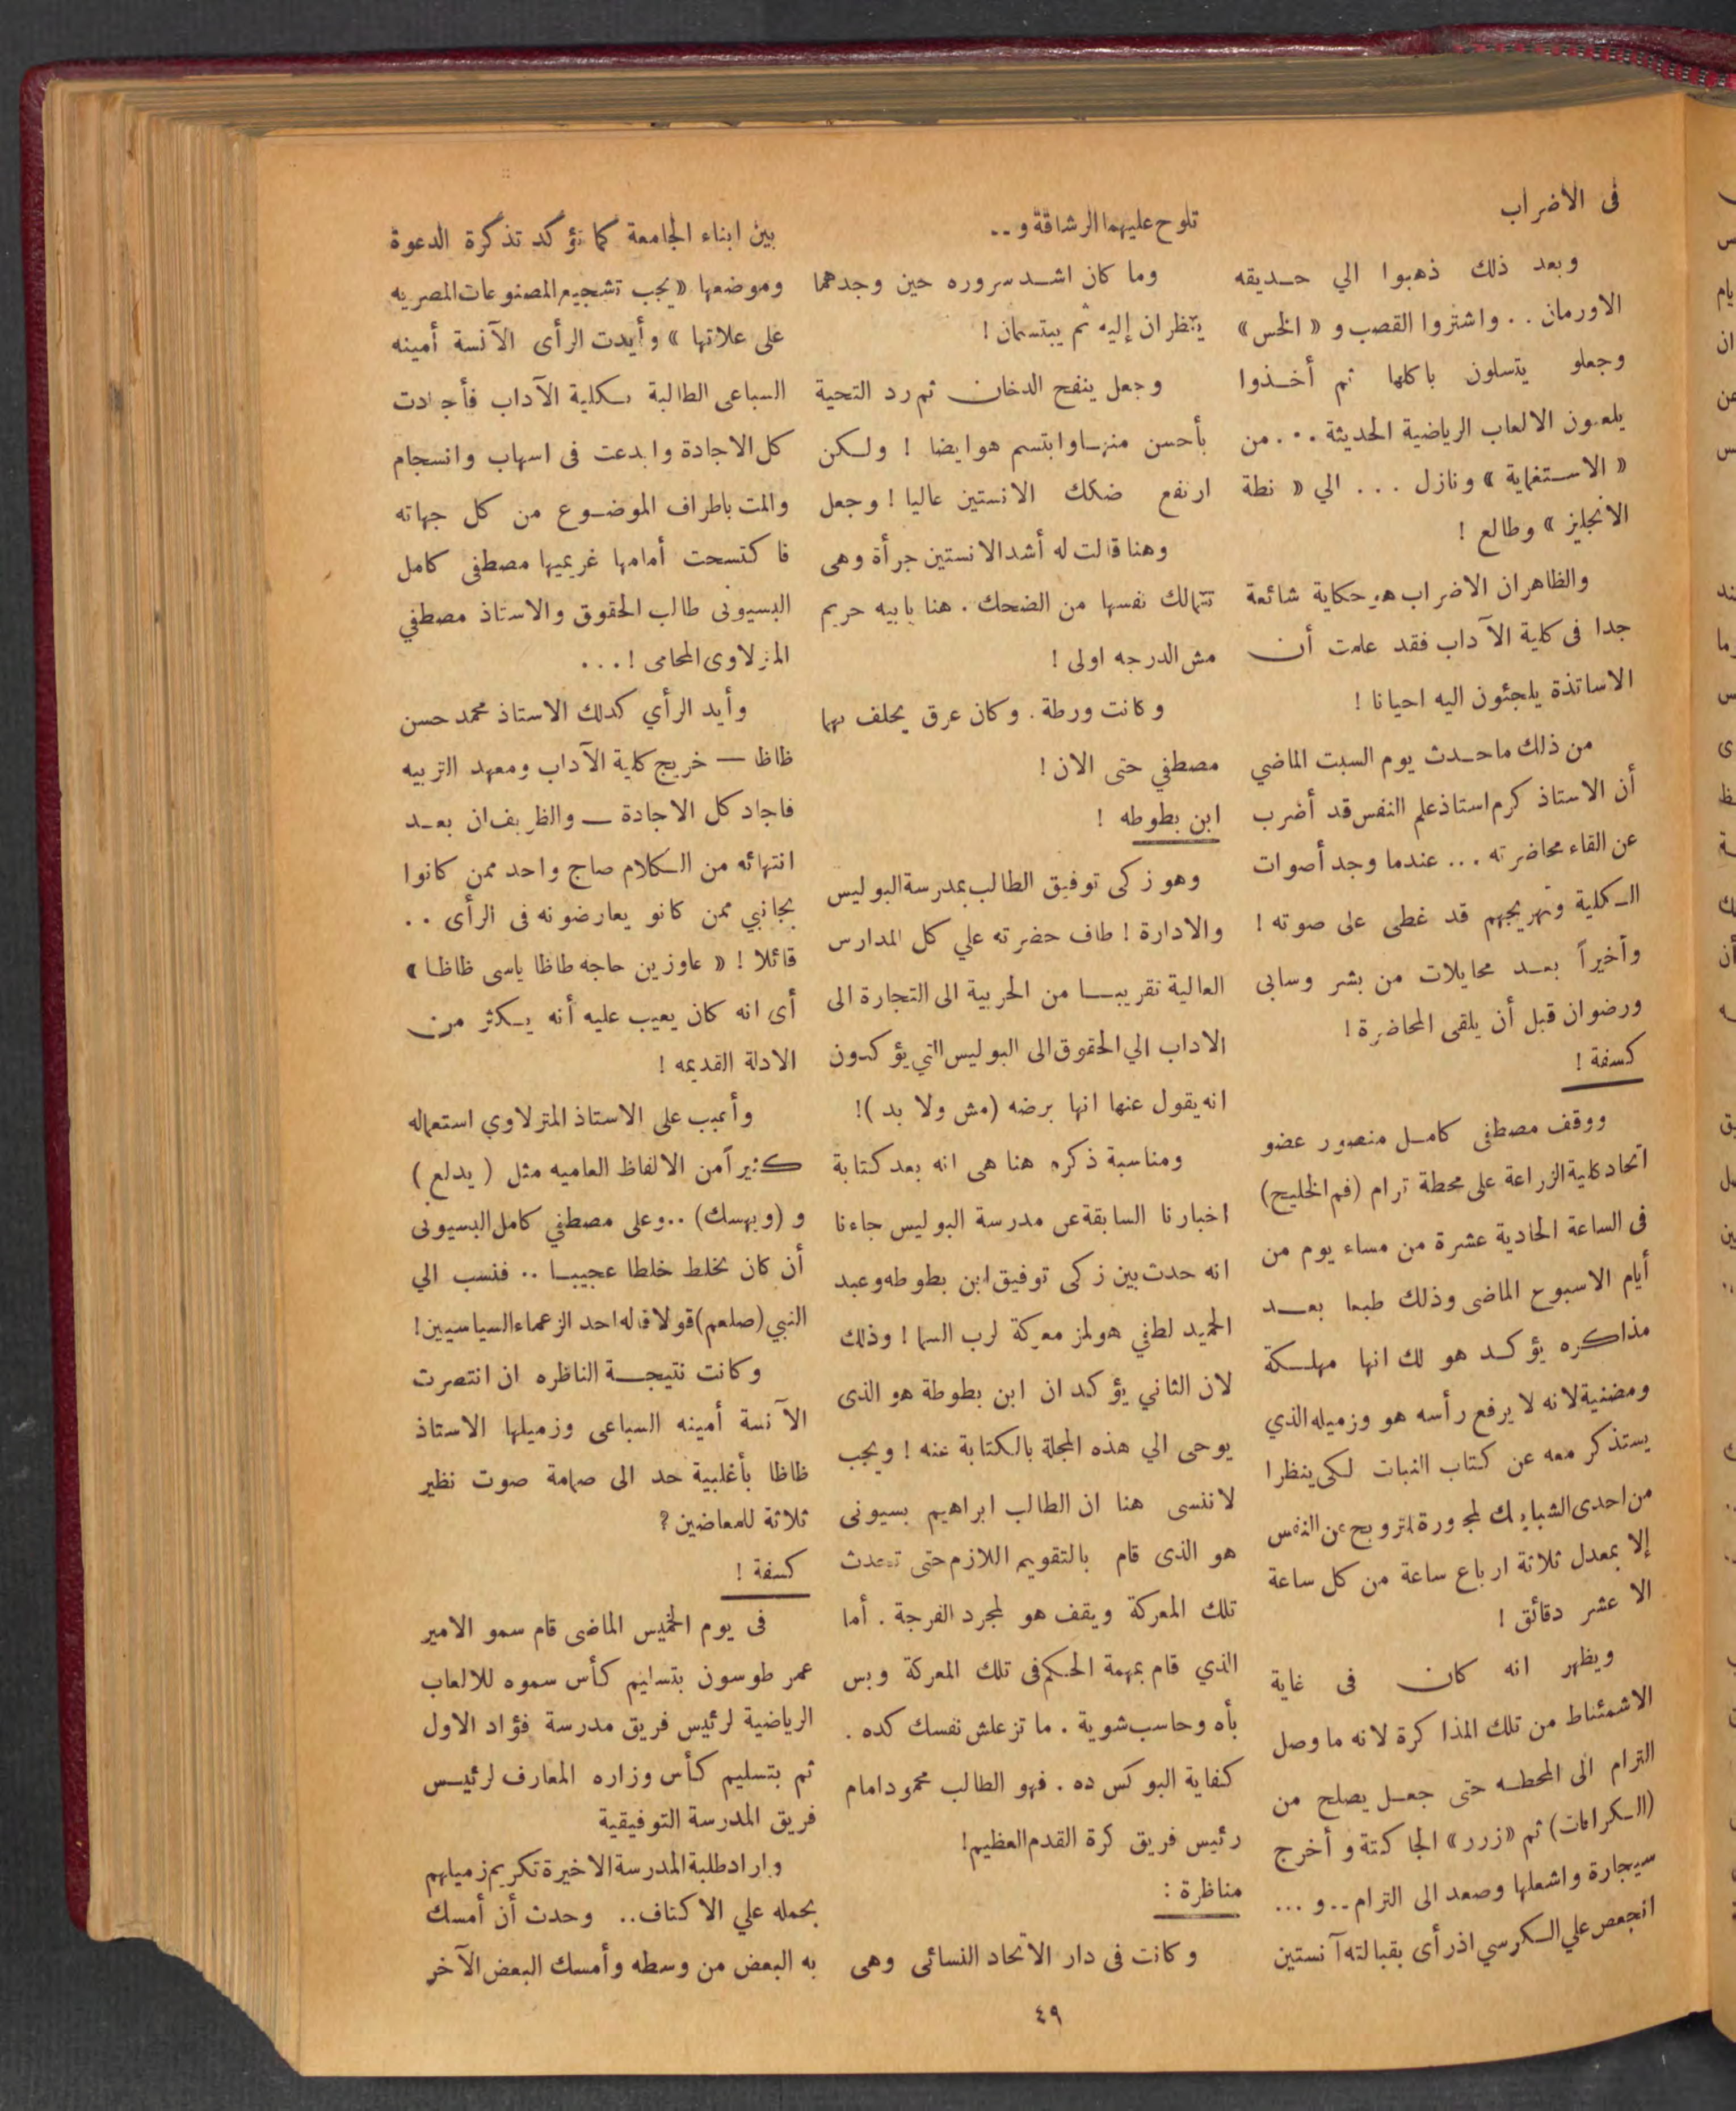 فى الأضراب
وبعد ذلك ذهبوا الي حديقه
الاورمان . . واشتروا القصب و « الخس »
وجعلو يتسلون باكلها ثم أخذوا
يلعبون الالعاب الرياضية الحديثة . . . من
« الاستغماية » ونازل . . . الي « نطة
الانجليز » وطالع !
والظاهر ان الاضراب هو حكاية شائعة
جدا فى كلية الآداب فقد علمت أن
الاساتذة يلجئون اليه احيانا !
من ذلك ماحدث يوم السبت الماضي
أن الاستاذ كرم استاذ علم النفس قد أضرب
عن القاء محاضرته ... عندما وجد أصوات
الكلية وتهريجهم قد غطى على صوته !
وأخيراً بعد محايلات من بشر وسابى
ورضوان قبل أن يلقى المحاضرة !
كسفة !
ووقف مصطفى كامل منصور عضو
اتحاد كلية الزراعة على محطة ترام (فم الخليج)
فى الساعة الحادية عشرة من مساء يوم من
أيام الاسبوع الماضى وذلك طبعا بعد
مذاكره يؤكد هو لك انها مهلكة
ومضنية لانه لا يرفع رأسه هو وزميله الذي
يستذكر معه عن كتاب النبات لكى ينظرا
من احدى الشبابيك لمجورة لترويح عن النفس
إلا بمعدل ثلاثة ارباع ساعة من كل ساعة
الا عشر دقائق !
ويظهر انه كان فى غاية
الاشمئناط من تلك المذاكرة لانه ما وصل
الترام الى المحطه حتى جعل يصلح من
(الكرافات) ثم « زرر » الجاكتة و أخرج
سيجارة واشعلها وصعد الى الترام .. و ...
انجعص علي الكرسي اذ رأى بقبالته آنستين
تلوح عليهما الرشاقة و ..
وما كان اشد سروره حين وجدهما
ينظران إليه ثم يبتسمان !
وجعل ينفح الدخان ثم رد التحية
بأحسن منها وابتسم هو ايضا ! ولكن
ارتفع ضكك الانستين عاليا ! وجعل
وهنا قالت له أشد الانستين جرأة وهى
تتمالك نفسها من الضحك . هنا يابيه حريم
مش الدرجه اولى !
وكانت ورطة . وكان عرق يحلف بها
مصطفي حتى الان !
ابن بطوطه !
وهو زكى توفيق الطالب بمدرسة البوليس
والادارة ! طاف حضرته علي كل المدارس
العالية تقريبا من الحربية الى التجارة الى
الاداب الي الحقوق الى البوليس التي يؤكدون
انه يقول عنها انها برضه (مش ولا بد )!
ومناسبة ذكره هنا هى انه بعد كتابة
اخبارنا السابقة عن مدرسة البوليس جاءنا
انه حدث بين زكى توفيق ابن بطوطه وعبد
الحميد لطفي هولمز معركة لرب السما ! وذلك
لان الثاني يؤكد ان ابن بطوطة هو الذى
يوحى الي هذه المجلة بالكتابة عنه ! ويجب
لاننسى هنا ان الطالب ابراهيم بسيونى
هو الذى قام بالتقويم اللازم حتى تحدث
تلك المعركة ويقف هو لمجرد الفرجة . أما
الذي قام بمهمة الحكم فى تلك المعركة وبس
بأه وحاسب شوية . ما تزعلش نفسك كده .
كفاية البوكس ده . فهو الطالب محمود امام
رئيس فريق كرة القدم العظيم !
مناظرة :
وكانت فى دار الاتحاد النسائى وهى
بين ابناء الجامعة كما تؤكد تذكرة الدعوة
وموضعها « يجب تشجيع المصنوعات المصريه
على علاتها » وأيدت الرأى الآنسة أمينه
السباعى الطالبة بكلية الآداب فأجادت
كل الاجادة وابدعت فى اسهاب وانسجام
والمت باطراف الموضوع من كل جهاته
فاكتسحت أمامها غريميها مصطفى كامل
البسيونى طالب الحقوق والاستاذ مصطفي
المنزلاوى المحامى ! . . .
وأيد الرأي كدلك الاستاذ محمد حسن
ظاظا — خريج كلية الآداب ومعهد التربيه
فاجاد كل الاجادة — والظريف ان بعد
انتهائه من الكلام صاح واحد ممن كانوا
بجانبي ممن كانو يعارضونه فى الرأى . .
قائلا ! « عاوزين حاجه طاظا ياسى ظاظا »
أى انه كان يعيب عليه أنه يكثر من
الادلة القديمه !
وأعيب على الاستاذ المنزلاوي استعماله
كثيراً من الالفاظ العاميه مثل ( يدلع )
و (وبهسك) .. وعلى مصطفي كامل البسيونى
أن كان يخلط خلطا عجيبا .. فنسب الي
النبي (صلعم) قولا قاله احد الزعماء السياسيين !
وكانت نتيجة الناظره ان انتصرت
الآنسة أمينه السباعى وزميلها الاستاذ
ظاظا بأغلبية حد الى صهامة صوت نظير
ثلاثة للمعاضين ؟
كسفة !
فى يوم الخميس الماضى قام سمو الامير
عمر طوسون بتسليم كأس سموه للالعاب
الرياضية لرئيس فريق مدرسة فؤاد الاول
ثم بتسليم كأس وزاره المعارف لرئيس
فريق المدرسة التوفيقية
واراد طلبة المدرسة الاخيرة تكريم زميلهم
بحمله علي الاكتاف .. وحدث أن أمسك
به البعض من وسطه وأمسك البعض الآخر
٤٩